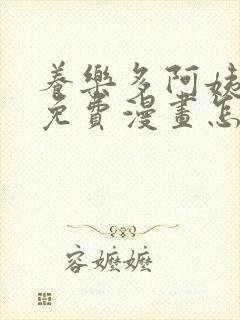 養樂多阿姨
免費漫畫怎
容嬤嬤